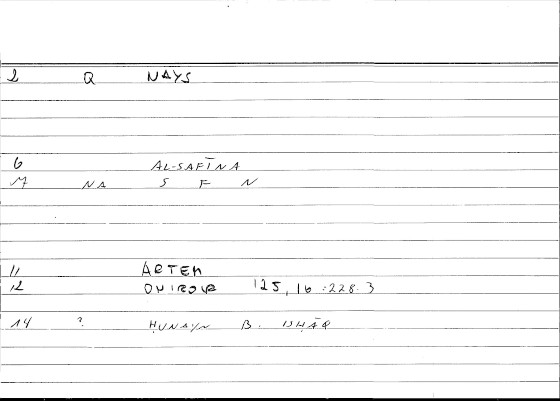 2 Q NAYS
6 AL-SAFĪNA
M NA S F N
11 ARTEM
12 ONIROCR 125,16:228.3
14 ? ḤUNAYN B. ISḤĀQ